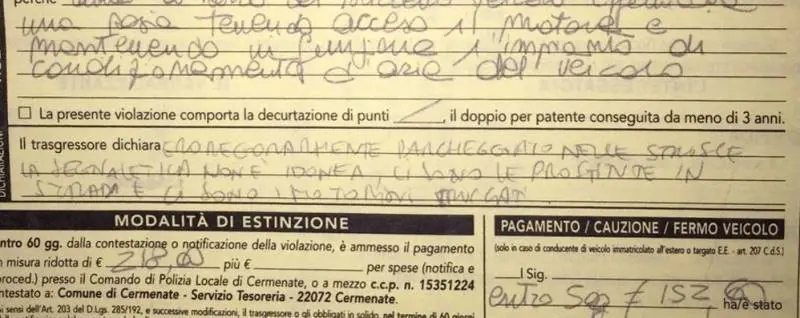 una sosta tenendo acceso il motore e
mantenendo in funzione l'impianto di
condizionamento d'aria del veicolo
□ La presente violazione comporta la decurtazione di punti / , il doppio per patente conseguita da meno di 3 anni.
Il trasgressore dichiara ERO REGOLARMENTE PARCHEGGIATO NELLE STRISCE
LA SEGNALETICA NON È IDONEA, CI SONO LE PROSTITUTE IN
STRADA E CI SONO I MOTORINI TRUCCATI
MODALITÀ DI ESTINZIONE
ntro 60 gg. dalla contestazione o notificazione della violazione, è ammesso il pagamento
n misura ridotta di € 218,00 più € per spese (notifica e
proced.) presso il Comando di Polizia Locale di Cermenate, o a mezzo c.c.p. n. 15351224
ntestato a: Comune di Cermenate - Servizio Tesoreria - 22072 Cermenate.
i sensi dell'Art. 203 del D.Lgs. 285/192, e successive modificazioni, il trasgressore o gli obbligati in solido, nel termine di 60 giorni
PAGAMENTO / CAUZIONE / FERMO VEICOLO
(solo in caso di conducente di veicolo immatricolato all'estero o targato E.E. - art. 207 C.d.S.)
I Sig.
entro 5gg € 152, ha/è stato